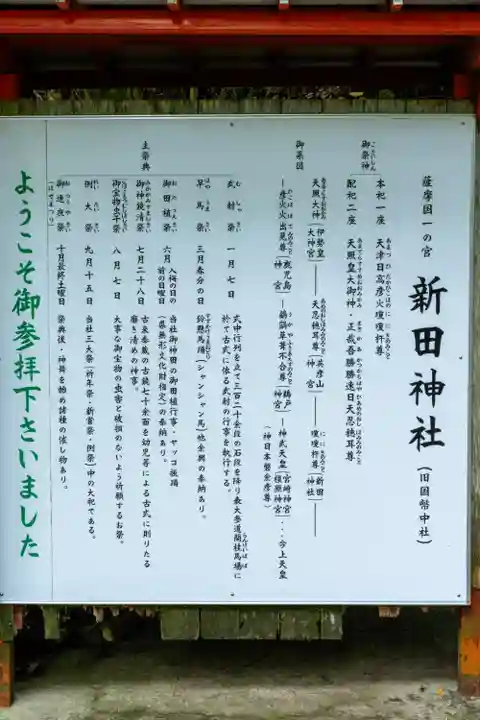 薩摩国一の宮
新田神社（旧国幣中社）
御祭神
本社一座 天津日高彦火瓊瓊杵尊
配祀二座 天照皇大御神・正哉吾勝勝速日天忍穂耳尊
御系図
天照大神（伊勢皇大神宮）――天忍穂耳尊（英彦山神宮）――瓊瓊杵尊（新田神社）――
―彦火火出見尊（鹿児島神宮）――鸕鷀草葺不合尊（鵜戸神宮）――神武天皇（宮崎神宮 橿原神宮）・・・今上天皇
（神日本磐余彦尊）
主祭典
武射祭 一月七日 式中行列を立て三百二十余段の石段を降り表大参道蘭牟田馬場に
於て古式に依る武射の行事を執行する。
早馬祭 三月春分の日 鈴懸馬踊（シャンシャン馬）他余興の奉納あり。
御田植祭 六月 入梅の日の前の日曜日 当社御神田の御田植行事・ヤッコ振踊
（県無形文化財指定）の奉納あり。
御神鏡清祭 七月二十八日 古来奉蔵の古鏡七十余面を幼児等による古式に則りたる
磨き清めの神事。
御宝物虫干祭 八月七日 大事な御宝物の虫害と破損のないよう祈願するお祭。
例大祭 九月十五日 当社三大祭（祈年祭・新嘗祭・例祭）中の大祀である。
御通夜祭 十月最終土曜日 祭典後・神賑を始め諸種の催し物あり。
ようこそ御参拝下さいました